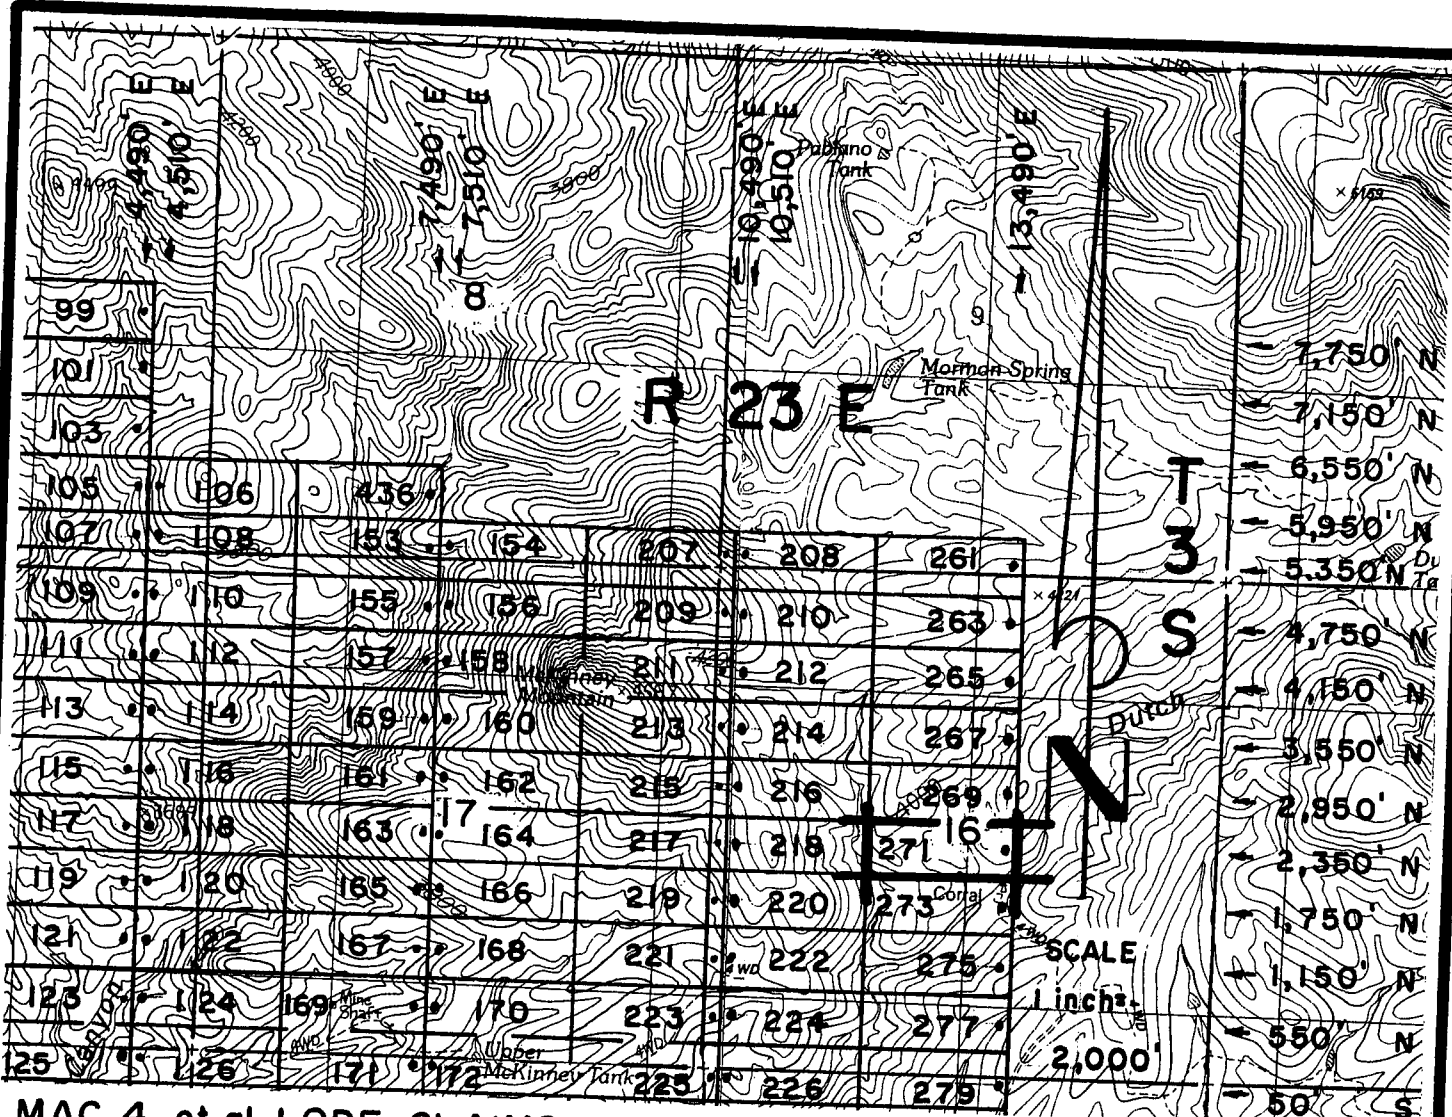 4000
4200
4,490' E
4,510' E
7,490' E
7,510' E
10,490' E
10,510' E
13,490' E
3800
Pabiano
Tank
8
9
Mormon Spring
Tank
R 23 E
T
3
S
7,750' N
7,150' N
6,550' N
5,950' N
5.350' N
4,750' N
4,150' N
3,550' N
2,950' N
2,350' N
1,750' N
1,150' N
550' N
50' S
99
101
103
105 106 436
107 108 153 154 207 208 261
109 110 155 156 209 210 263
111 112 157 158 211 212 265
McKinney
Mountain
113 114 159 160 213 214 267
115 116 161 162 215 216 269
4000
17
16
117 118 163 164 217 218 271
119 120 165 166 219 220 273
Corral
121 122 167 168 221 222 275
4WD
123 124 169 170 223 224 277
Mine
Shaft
4WD
4WD
Upper
McKinney Tank
125 126 171 172 225 226 279
Canyon
Dutch
N
SCALE
1 inch=
2,000'
MAC 4, et al LODE CLAIMS